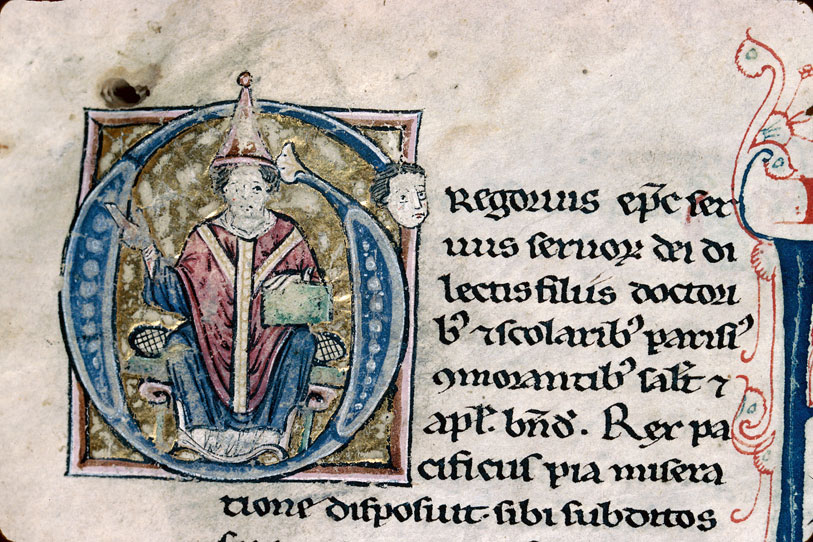 Regorius ep̄c ser
uus seruoꝝ dei di
lectis filiis doctori
bꝰ ⁊ scolaribꝰ parisiꝰ
ꝯmorantibꝰ sałt ⁊
apł. bn̄d̄. Rex pa
cificus pia misera
tione disposuit sibi subditos